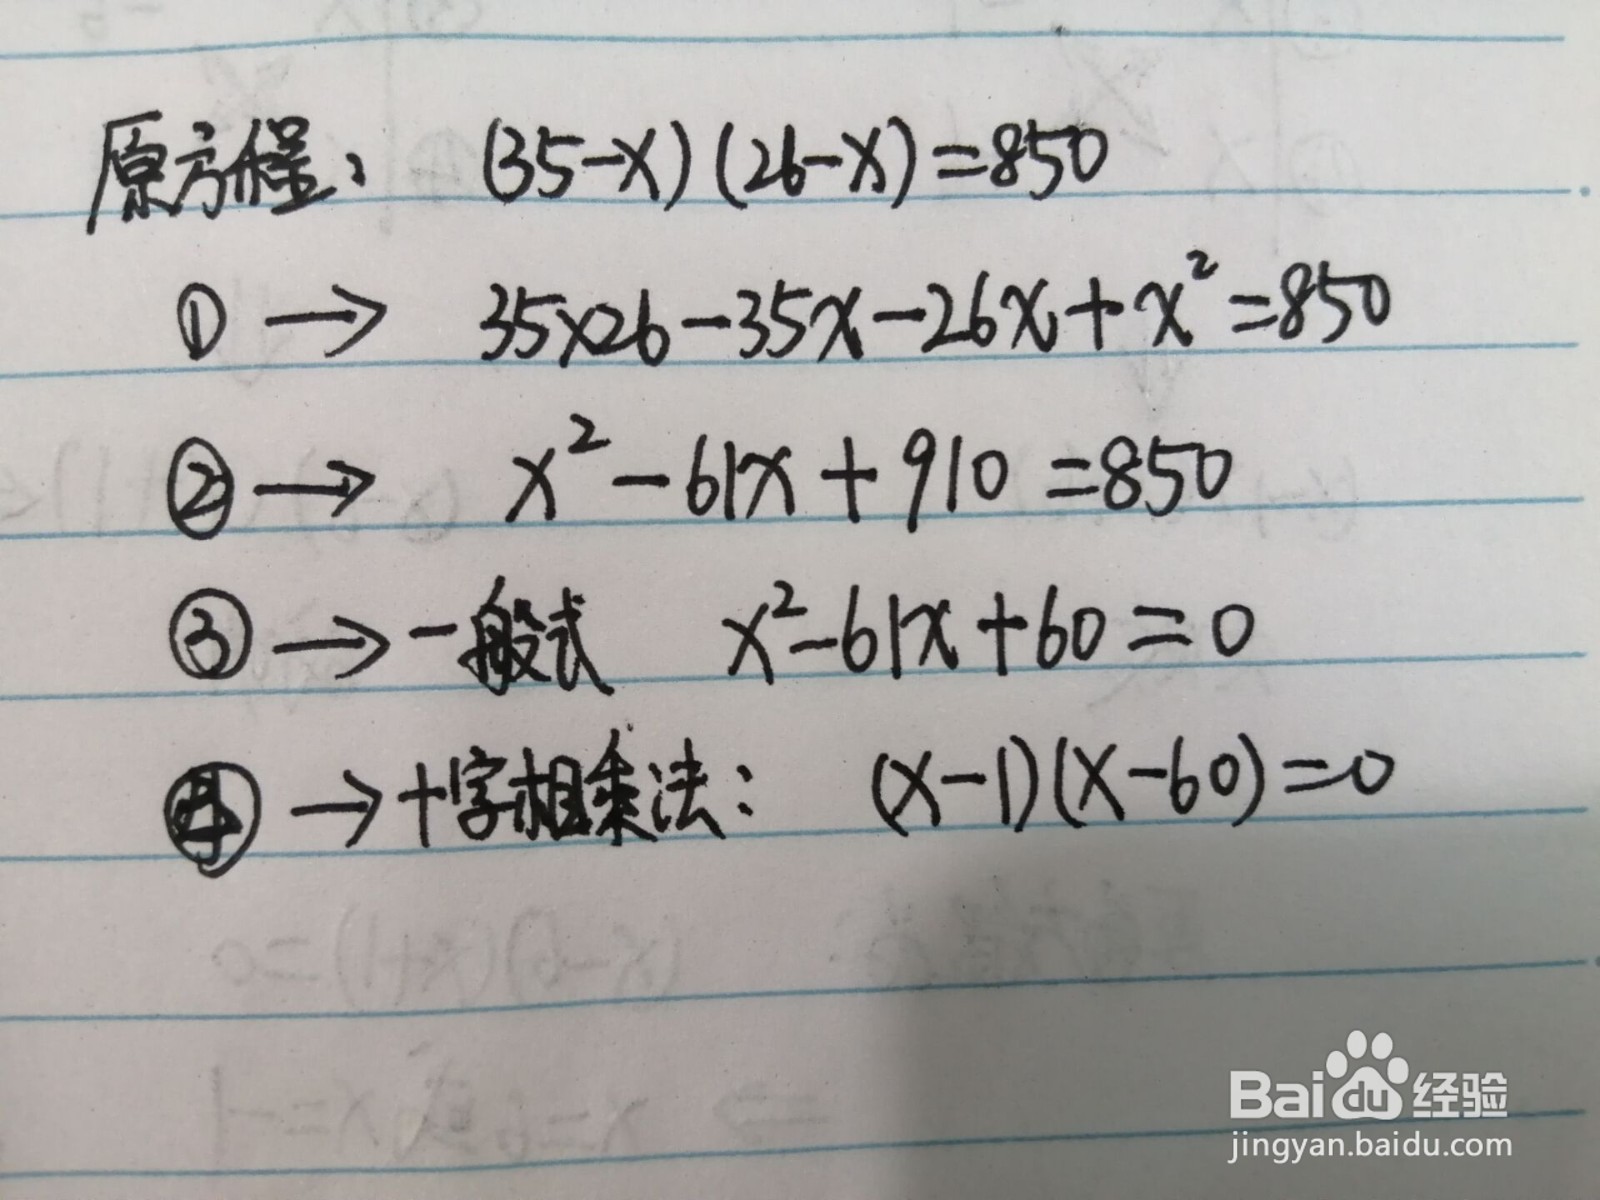 原方程: (35-x)(26-x)=850
① → 35×26-35x-26x+x²=850
② → x²-61x+910=850
③ → 一般式 x²-61x+60=0
④ → 十字相乘法: (x-1)(x-60)=0
Bai du 经验
jingyan.baidu.com